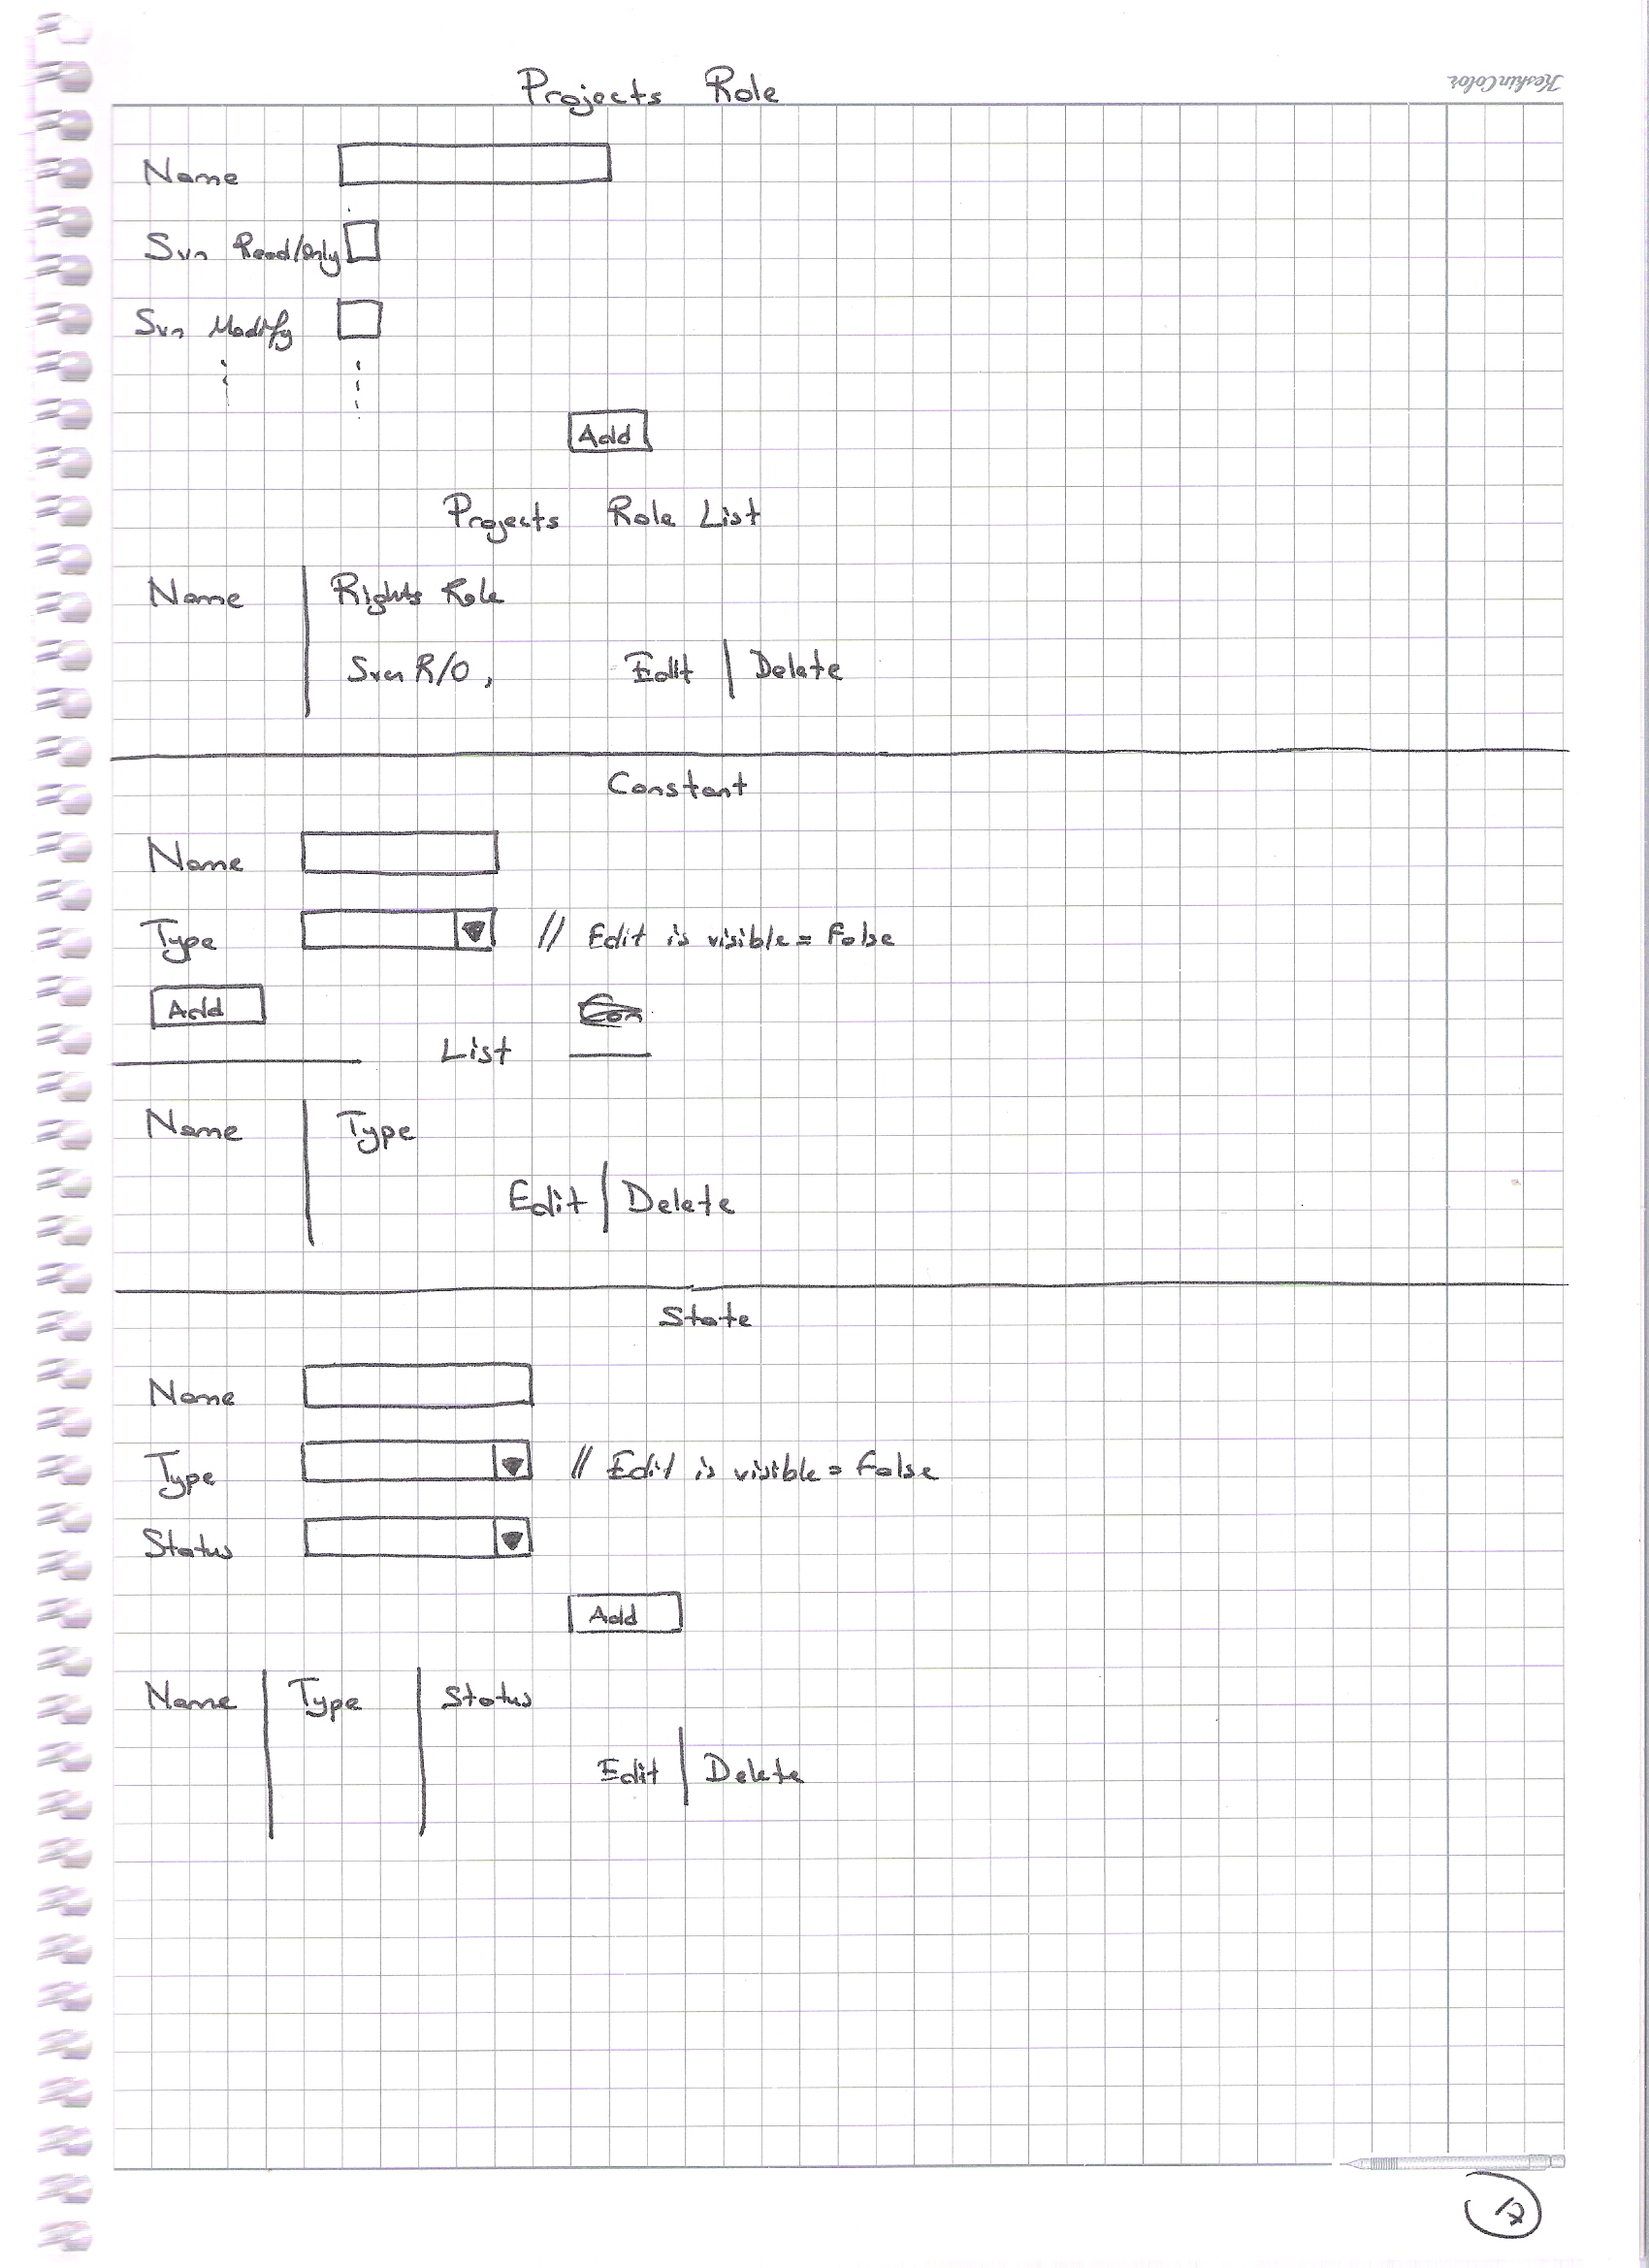 Projects Role
KeskinColor
Name
Svn Read/Only
Svn Modify
Add
Projects Role List
Name Rights Role
Svn R/O, Edit Delete
Constant
Name
Type // Edit is visible = False
Add
List
Name Type
Edit Delete
State
Name
Type // Edit is visible = False
Status
Add
Name Type Status
Edit Delete